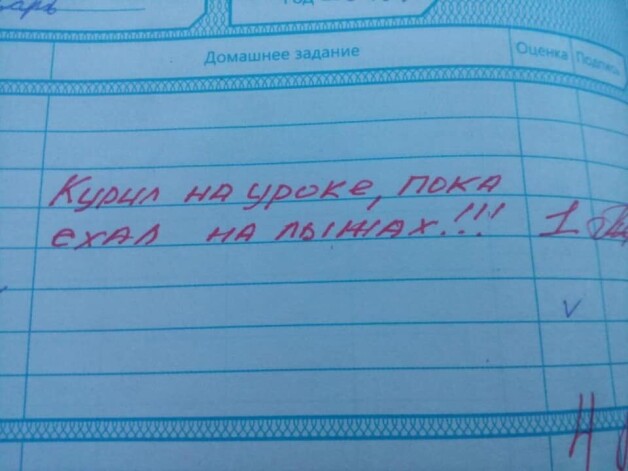 Домашнее задание Оценка Подпись
Курил на уроке, пока
ехал на лыжах!!! 1
v
Н